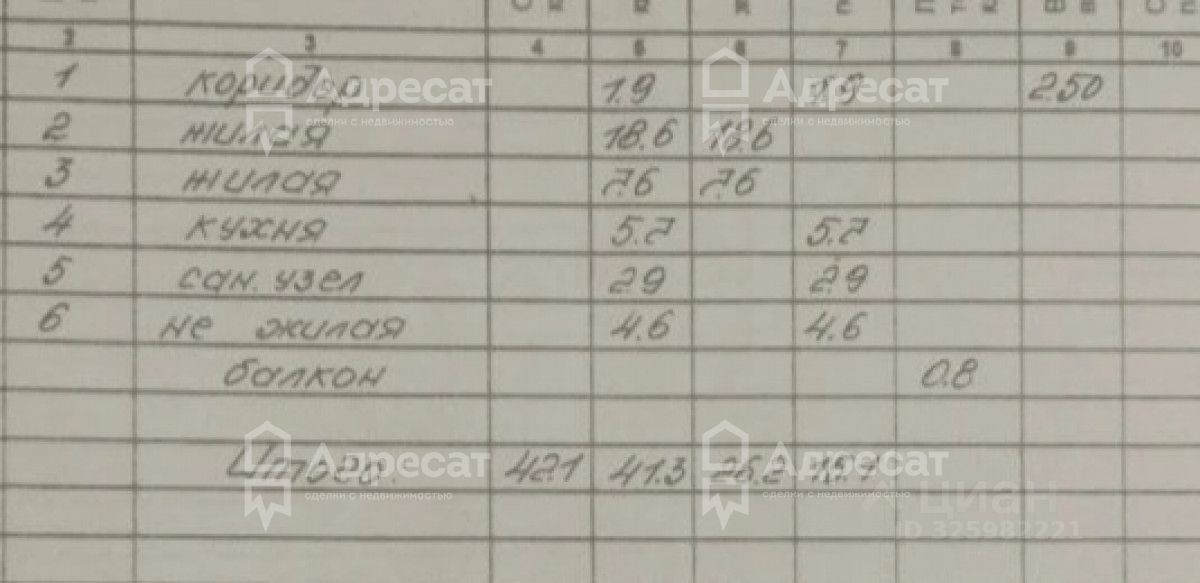 2 3 4 5 6 7 8 9 10
1 коридор 1.9 1.9 2.50
2 жилая 18.6 18.6
3 жилая 7.6 7.6
4 кухня 5.7 5.7
5 сан. узел 2.9 2.9
6 не жилая 4.6 4.6
балкон 0.8
Итого. 42.1 41.3 26.2 15.1
Адресат
сделки с недвижимостью
Адресат
сделки с недвижимостью
Адресат
сделки с недвижимостью
Адресат
сделки с недвижимостью
циан
ID 325982221